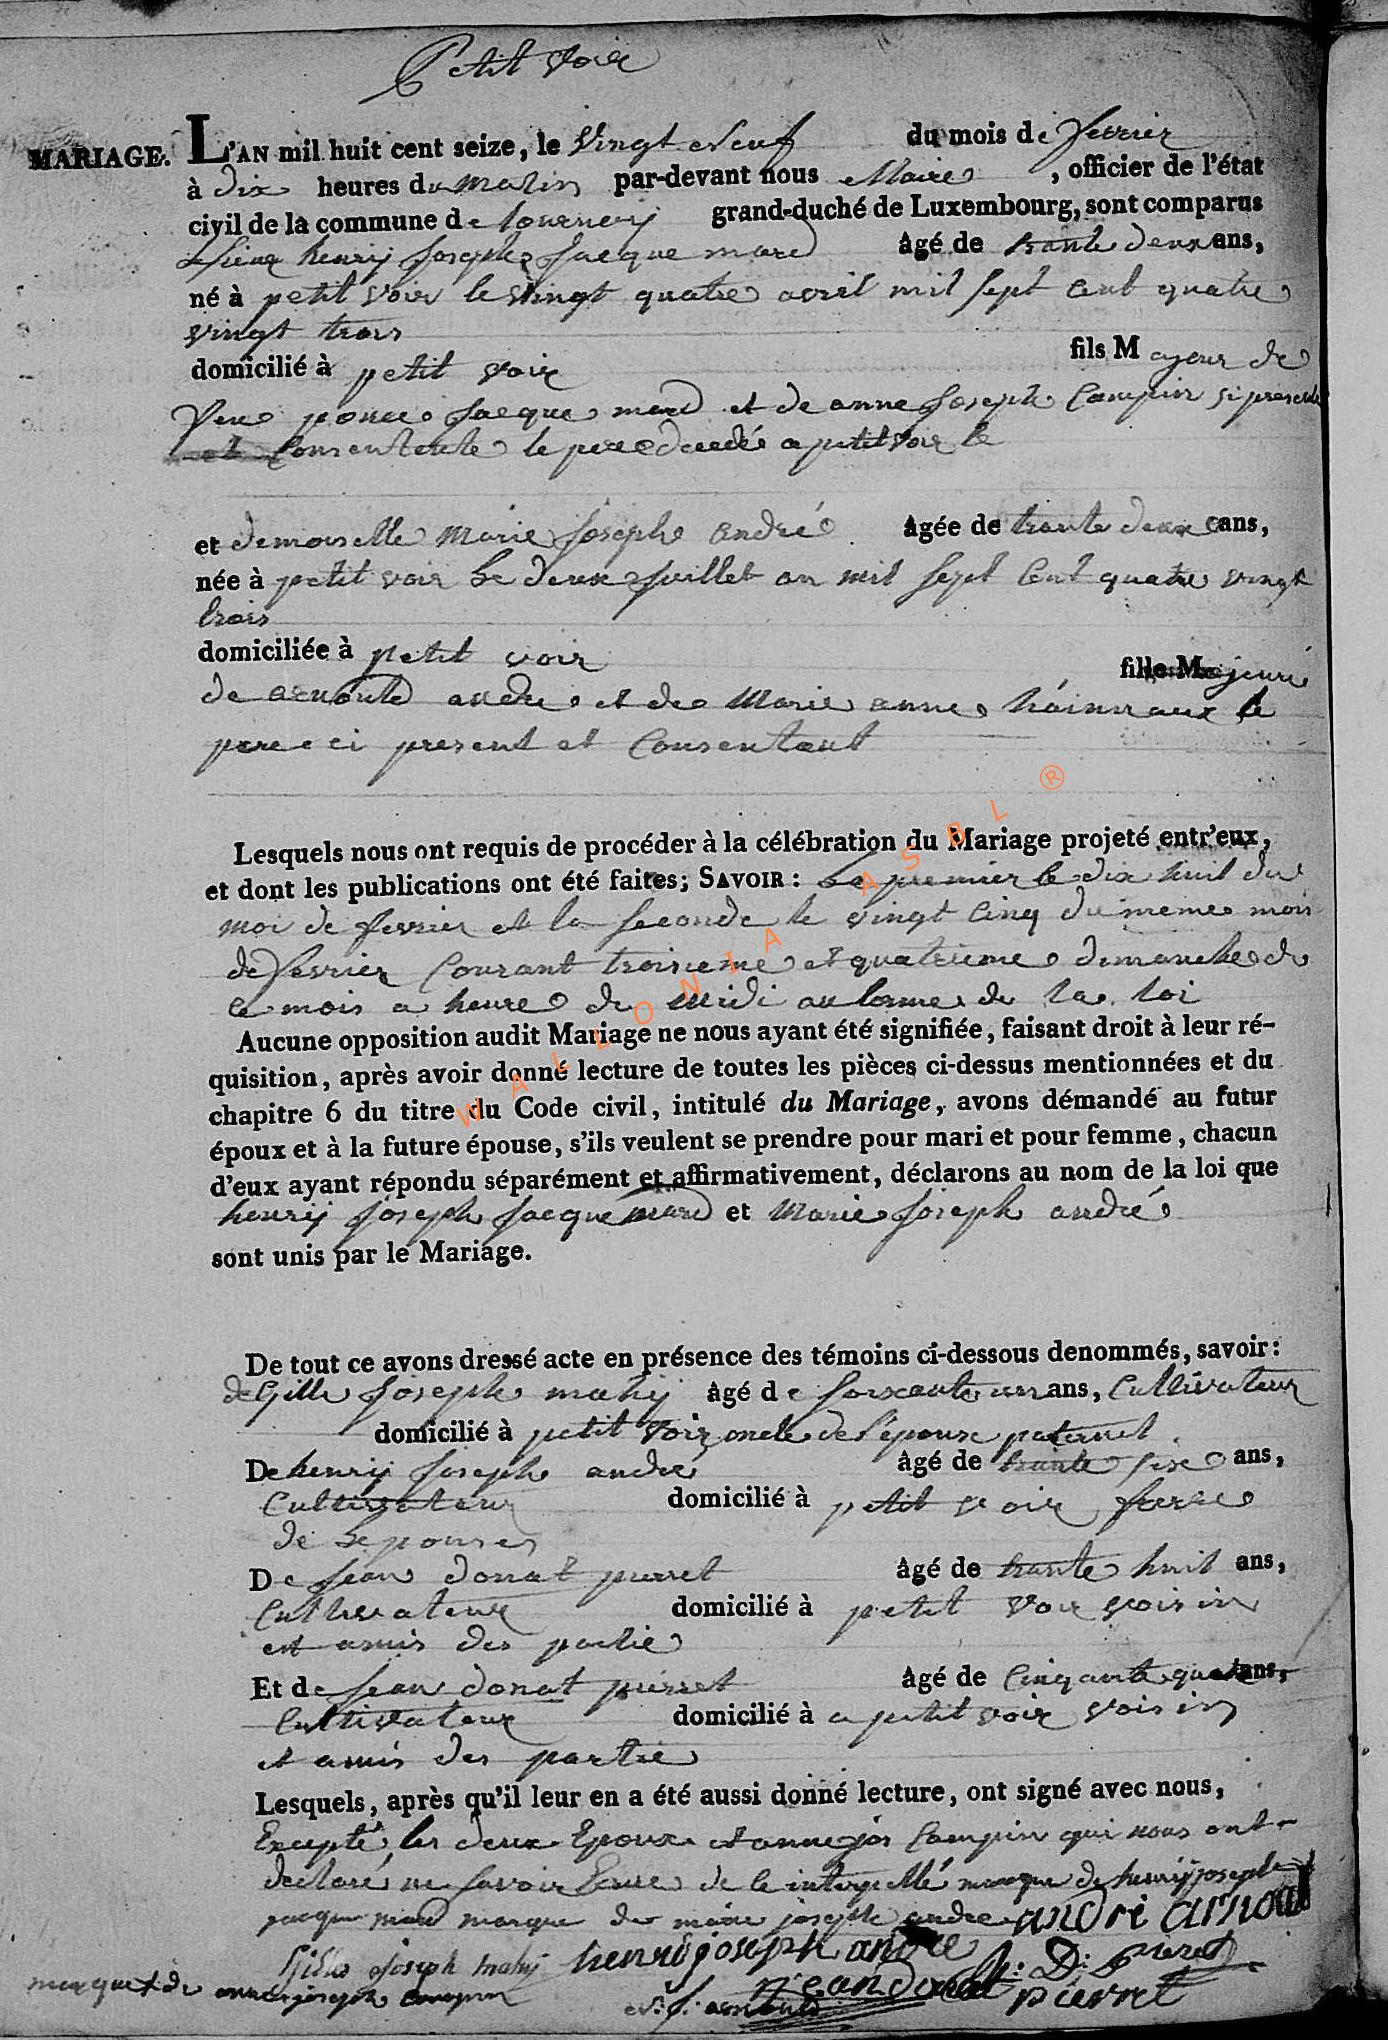 Petit voir
MARIAGE. L'AN mil huit cent seize, le vingt neuf du mois de fevrier
à dix heures du matin par-devant nous Maire, officier de l'état
civil de la commune de tournay grand-duché de Luxembourg, sont comparus
henry Joseph Jacque mard âgé de trante deux ans,
né à petit voir le vingt quatre avril mil sept cent quatre
vingt trois
domicilié à petit voir fils Majeur de
ponce Jacque mard et de anne Joseph Campin si presente
et Consentente le pere decedé a petit voir le
et demoiselle Marie Joseph andré âgée de trante deux ans,
née à petit voir le deux Juillet an mil sept Cent quatre vingt
trois
domiciliée à petit voir fille Majeure
de arnould andre et de Marie anne le
pere ci present et Consentant
Lesquels nous ont requis de procéder à la célébration du Mariage projeté entr'eux,
et dont les publications ont été faites; SAVOIR : La premier le dix huit du
moi de fevrier et la seconde le vingt Cinq du meme mois
de fevrier Courant troisieme et quatrieme dimanche de
ce mois a heure de Midi au forme de la loi
Aucune opposition audit Mariage ne nous ayant été signifiée, faisant droit à leur ré-
quisition, après avoir donné lecture de toutes les pièces ci-dessus mentionnées et du
chapitre 6 du titre du Code civil, intitulé du Mariage, avons démandé au futur
époux et à la future épouse, s'ils veulent se prendre pour mari et pour femme, chacun
d'eux ayant répondu séparément et affirmativement, déclarons au nom de la loi que
henry Joseph Jacque mard et Marie Joseph andré
sont unis par le Mariage.
De tout ce avons dressé acte en présence des témoins ci-dessous denommés, savoir:
de Gille Joseph mahy âgé de soixante un ans, Cultivateur
domicilié à petit voir oncle de l'epouse paternel
De henry Joseph andre âgé de trante six ans,
Cultivateur domicilié à petit voir frere
de lepouse
De Jean donat pierret âgé de trante huit ans,
Cultivateur domicilié à petit voir voisin
et amis des partie
Et de Jean donat pierret âgé de Cinqante quatre ans,
Cultivateur domicilié à a petit voir voisin
et amis des partie
Lesquels, après qu'il leur en a été aussi donné lecture, ont signé avec nous,
Excepté les deux Epoux et anne jos Campin qui nous ont
declaré ne savoir Ecrire de le interpellé marque de henry joseph
jacque mard marque de marie joseph andre andré arnoul
Gille Joseph mahy henri joseph andre J: D: pieret
marque + de anne joseph campin jean donat pierret
WALLONIA ASBL ®